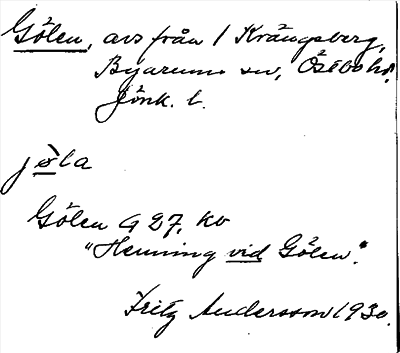 Gölen, avs från 1 Krängsberg,
Byarums sn, Östbo hd.
Jönk. l.
jö̀la
Gölen G 27, kv
"Henning vid Gölen".
Fritz Andersson 1930.